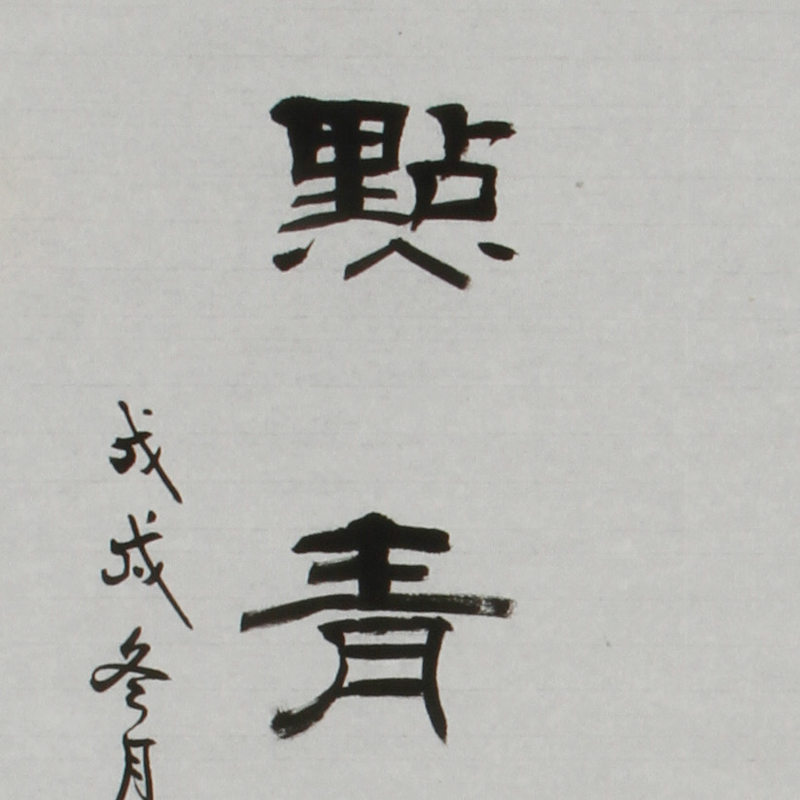 點青
戊戌冬月